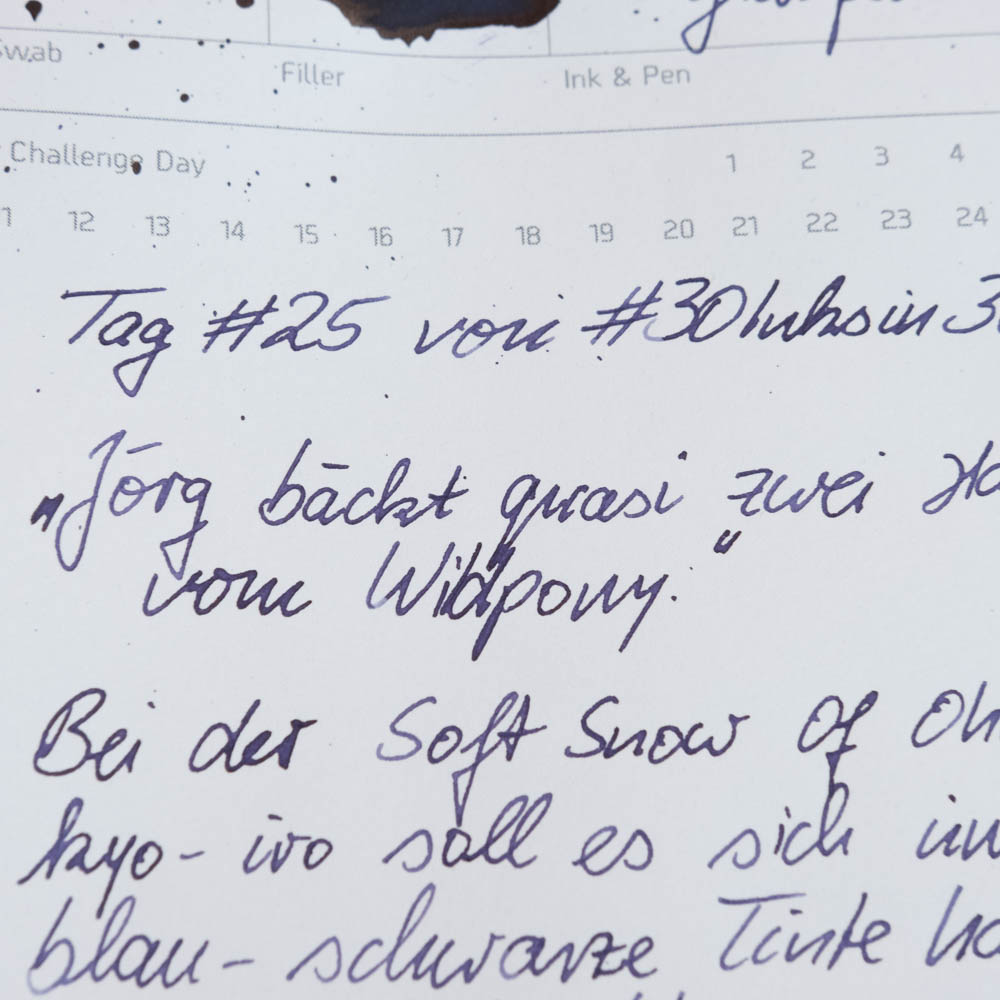 Swab
Filler
Ink & Pen
Challenge Day
1 2 3 4
11 12 13 14 15 16 17 18 19 20 21 22 23 24
Tag #25 von #30Inksin3
„Jörg bäckt quasi zwei Ha
vom Wildpony."
Bei der Soft Snow Of Oh
kyo-iro soll es sich um
blau-schwarze Tinte ha